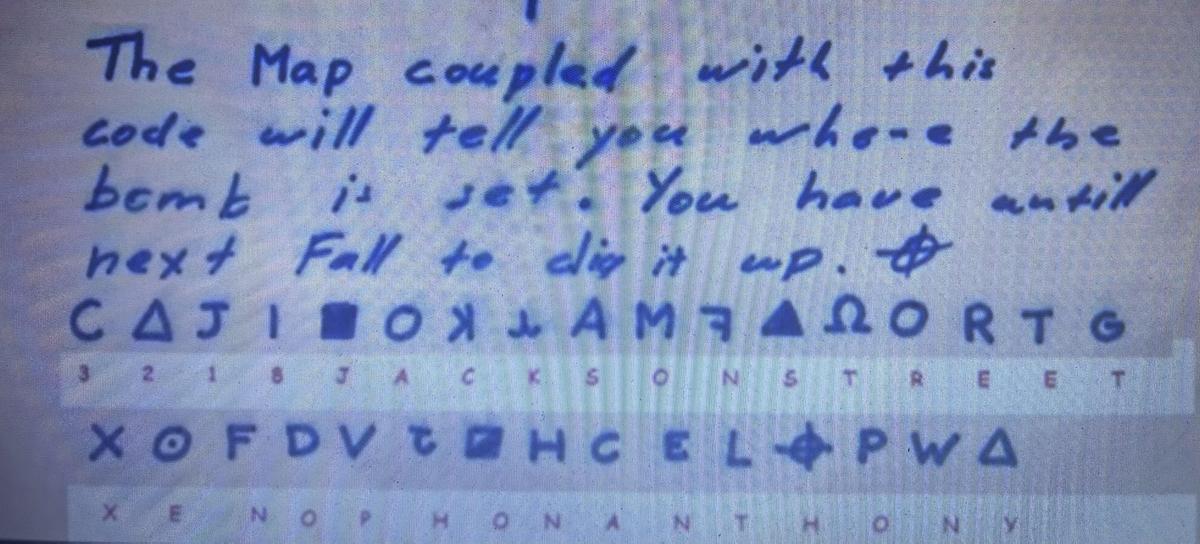 The Map coupled with this
code will tell you whore the
bomb is set. You have antill
next Fall to dig it up. ⌖
C Δ J I ■ O ꓘ ⅄ A M ꟻ ▲ Ω O R T G
3 2 1 8 J A C K S O N S T R E E T
X ⊙ F D V ፒ ◪ H C E L ⌖ P W Δ
X E N O P H O N A N T H O N Y